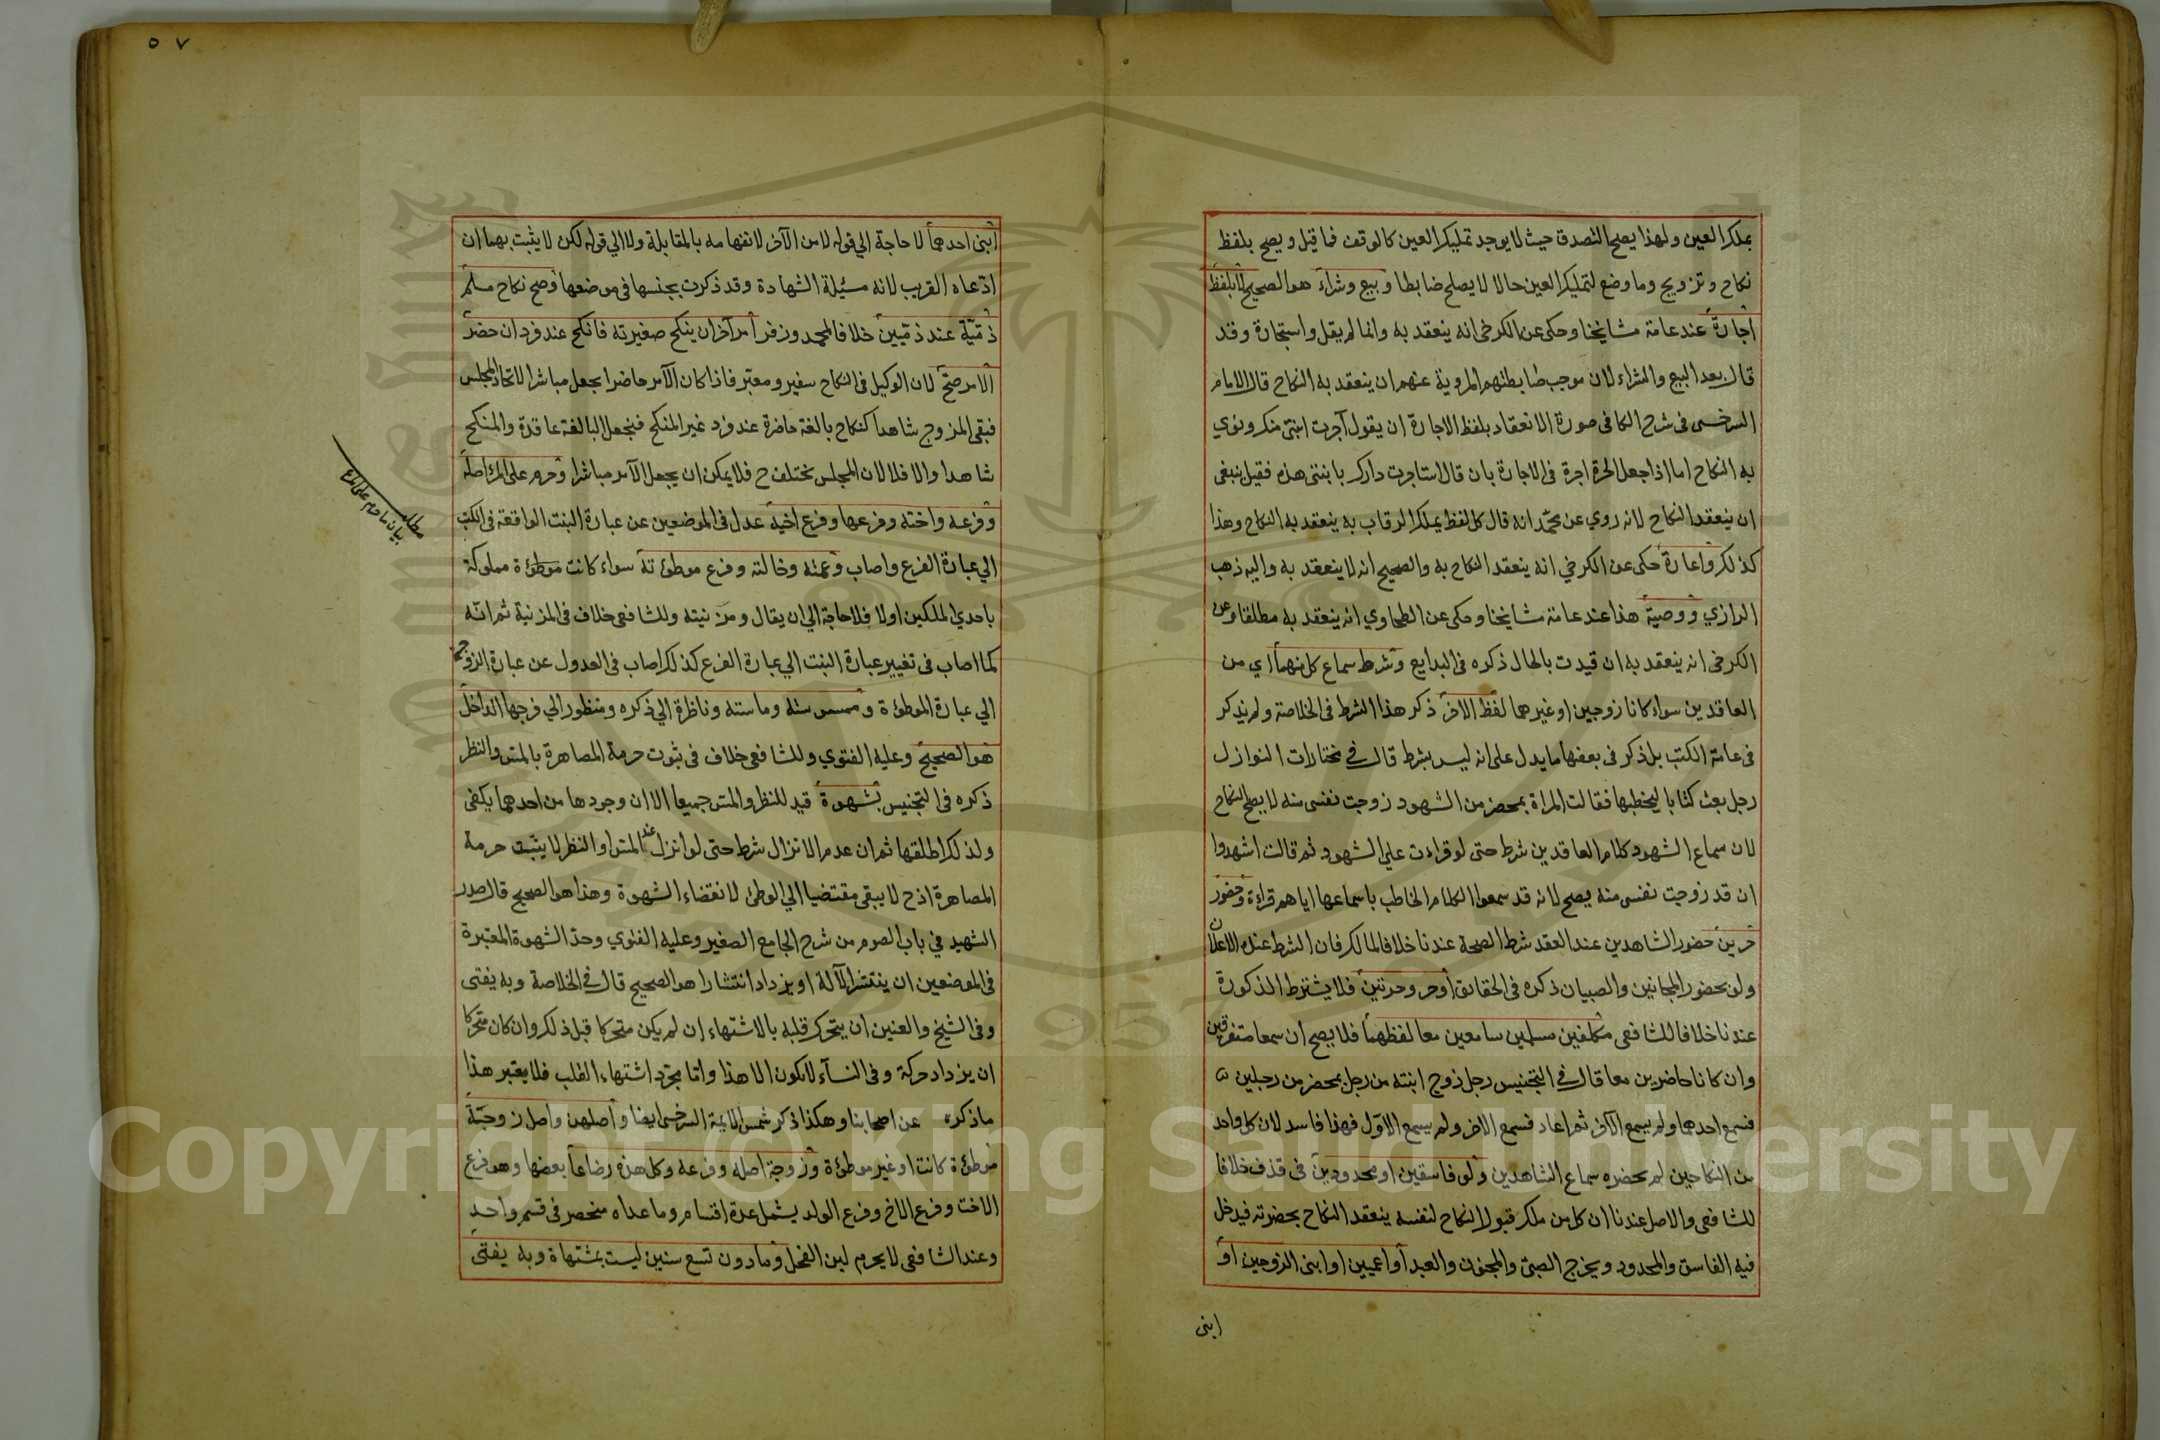 بملك العين ولهذا يصح التصدق حيث لا يوجد تمليك العين كالوقف فما قيل ويصح بلفظ
نكاح وتزويج وما وضع لتمليك العين حالا لا يصلح ضابطا وبيع وشراء هو الصحيح لا بلفظ
اجارة عند عامة مشايخنا وحكى عن الكرخي انه ينعقد به وانما لم يقل واستجارة وقد
قال بعد البيع والشراء لان موجب ضابطتهم المروية عنهم ان ينعقد به النكاح قال الامام
السرخسي في شرح الكافي صورة الانعقاد بلفظ الاجارة ان يقول آجرت ابنتي منك ونوي
به النكاح اما اذا جعل الحرة اجرة في الاجارة بان قال استاجرت دارك بابنتي هذه فقيل ينبغى
ان ينعقد النكاح لانه روي عن محمد انه قال كل لفظ يملك الرقاب به ينعقد به النكاح وهذا
كذلك واعارة حكى عن الكرخي انه ينعقد النكاح به والصحيح انه لا ينعقد به واليه ذهب
الرازي ووصية هذا عند عامة مشايخنا وحكى عن الطحاوي انه ينعقد به مطلقا وعن
الكرخي انه ينعقد به ان قيدت بالحال ذكره في البدايع وشرط سماع كل منهما اي من
العاقدين سواء كانا زوجين او غيرهما لفظ الاخر ذكر هذا الشرط في الخلاصة ولم يذكر
في عامة الكتب بل ذكر في بعضها ما يدل على انه ليس بشرط قال في مختارات النوازل
رجل بعث كتابا ليخطبها فقالت المراة بمحضر من الشهود زوجت نفسى منه لا يصح النكاح
لان سماع الشهود كلام العاقدين شرط حتى لو قراءت على الشهود ثم قالت اشهدوا
ان قد زوجت نفسى منه يصح لانه قد سمعوا الكلام الخاطب باسماعها اياهم قراءة وحضور
حرين حضور الشاهدين عند العقد شرط الصحة عندنا خلافا لمالك فان الشرط عنده الاعلان
ولو بحضور المجانين والصبيان ذكره في الحقائق او حر وحرتين فلا يشترط الذكورة
عندنا خلافا للشافعى مكلفين مسلمين سامعين معا لفظهما فلا يصح ان سمعا متفرقين
وان كانا حاضرين معا قال في التجنيس رجل زوج ابنته من رجل بمحضر من رجلين
فسمع احدهما ولم يسمع الآخر ثم اعاد فسمع الاخر ولم يسمع الاول فهذا فاسد لان كل واحد
من النكاحين لم يحضره سماع الشاهدين ولو فاسقين او محدودين في قذف خلافا
للشافعى والاصل عندنا ان كل من ملك قبول النكاح لنفسه ينعقد النكاح بحضرته فيدخل
فيه الفاسق والمحدود ويخرج الصبي والمجنون والعبد او اعميين او ابنى الزوجين او
ابنى
٥٧
ابنى احدهما لا حاجة الي قوله لا من الآخر لانفهامه بالمقابلة ولا الي قوله لكن لا يثبت بهما ان
ادعاه القريب لانه مسئلة الشهادة وقد ذكرت بجنسها في موضعها وصح نكاح مسلم
ذمية عند ذميين خلافا لمحمد وزفر امر آخر ان ينكح صغيرته فانكح عند فرد ان حضر
الامر صح لان الوكيل في النكاح سفير ومعبر فاذا كان الآمر حاضرا يجعل مباشرا لاتحاد المجلس
فبقى المزوج شاهدا كنكاح بالغة حاضرة عند فرد غير المنكح فيجعل البالغة عاقدة والمنكح
شاهدا والا فلا لان المجلس مختلف ح فلا يمكن ان يجعل الآمر مباشرا وحرم على المرء اصله
وفرعه واخته وفرعها وفرع اخيه عدل في الموضعين عن عبارة البنت الواقعة في الكتب
الي عبارة الفرع واصاب وعمته وخالته وفرع موطوءته سواء كانت موطوءة مملوكة
باحدي الملكين اولا فلا حاجة الي ان يقال ومزنيته وللشافعى خلاف في المزنية ثم انه
كما اصاب في تغيير عبارة البنت الي عبارة الفرع كذلك اصاب في العدول عن عبارة الزوجة
الي عبارة الموطوءة وممسوسته وماسته وناظرة الي ذكره ومنظور الي فرجها الداخل
هو الصحيح وعليه الفتوي وللشافعى خلاف في ثبوت حرمة المصاهرة بالمس والنظر
ذكره في التجنيس بشهوة قيد للنظر والمس جميعا الا ان وجودها من احدهما يكفى
ولذلك اطلقها ثم ان عدم الانزال شرط حتى لو انزل عند المس او النظر لا يثبت حرمة
المصاهرة اذ ح لا يبقى مقتضيا الي الوطئ لانقضاء الشهوة وهذا هو الصحيح قال صدر
الشهيد في باب الصوم من شرح الجامع الصغير وعليه الفتوي وحد الشهوة المعتبرة
في الموضعين ان ينتشر الآلة او يزداد انتشارا هو الصحيح قال في الخلاصة وبه يفتى
وفي الشيخ والعنين ان يتحرك قلبه بالاشتهاء ان لم يكن متحركا قبل ذلك وان كان متحركا
ان يزداد حركة وفي النسآء لا يكون الا هذا واما مجرد اشتهاء القلب فلا يعتبر هذا
ماذكره عن اصحابنا وهكذا ذكر شمس الايمة السرخسى ايضا واصلهن واصل زوجته
موطوءة كانت او غير موطوءة وزوجة اصله وفرعه وكل هذه رضاعا بعضها وهو فرع
الاخت وفرع الاخ وفرع الولد يشمل عدة اقسام وما عداه منحصر في قسم واحد
وعند الشافعى لا يحرم لبن الفحل وما دون تسع سنين ليست بمشتهاة وبه يفتى
مطلب
بيان ما حرم على المرء
Copyright © King Saud University